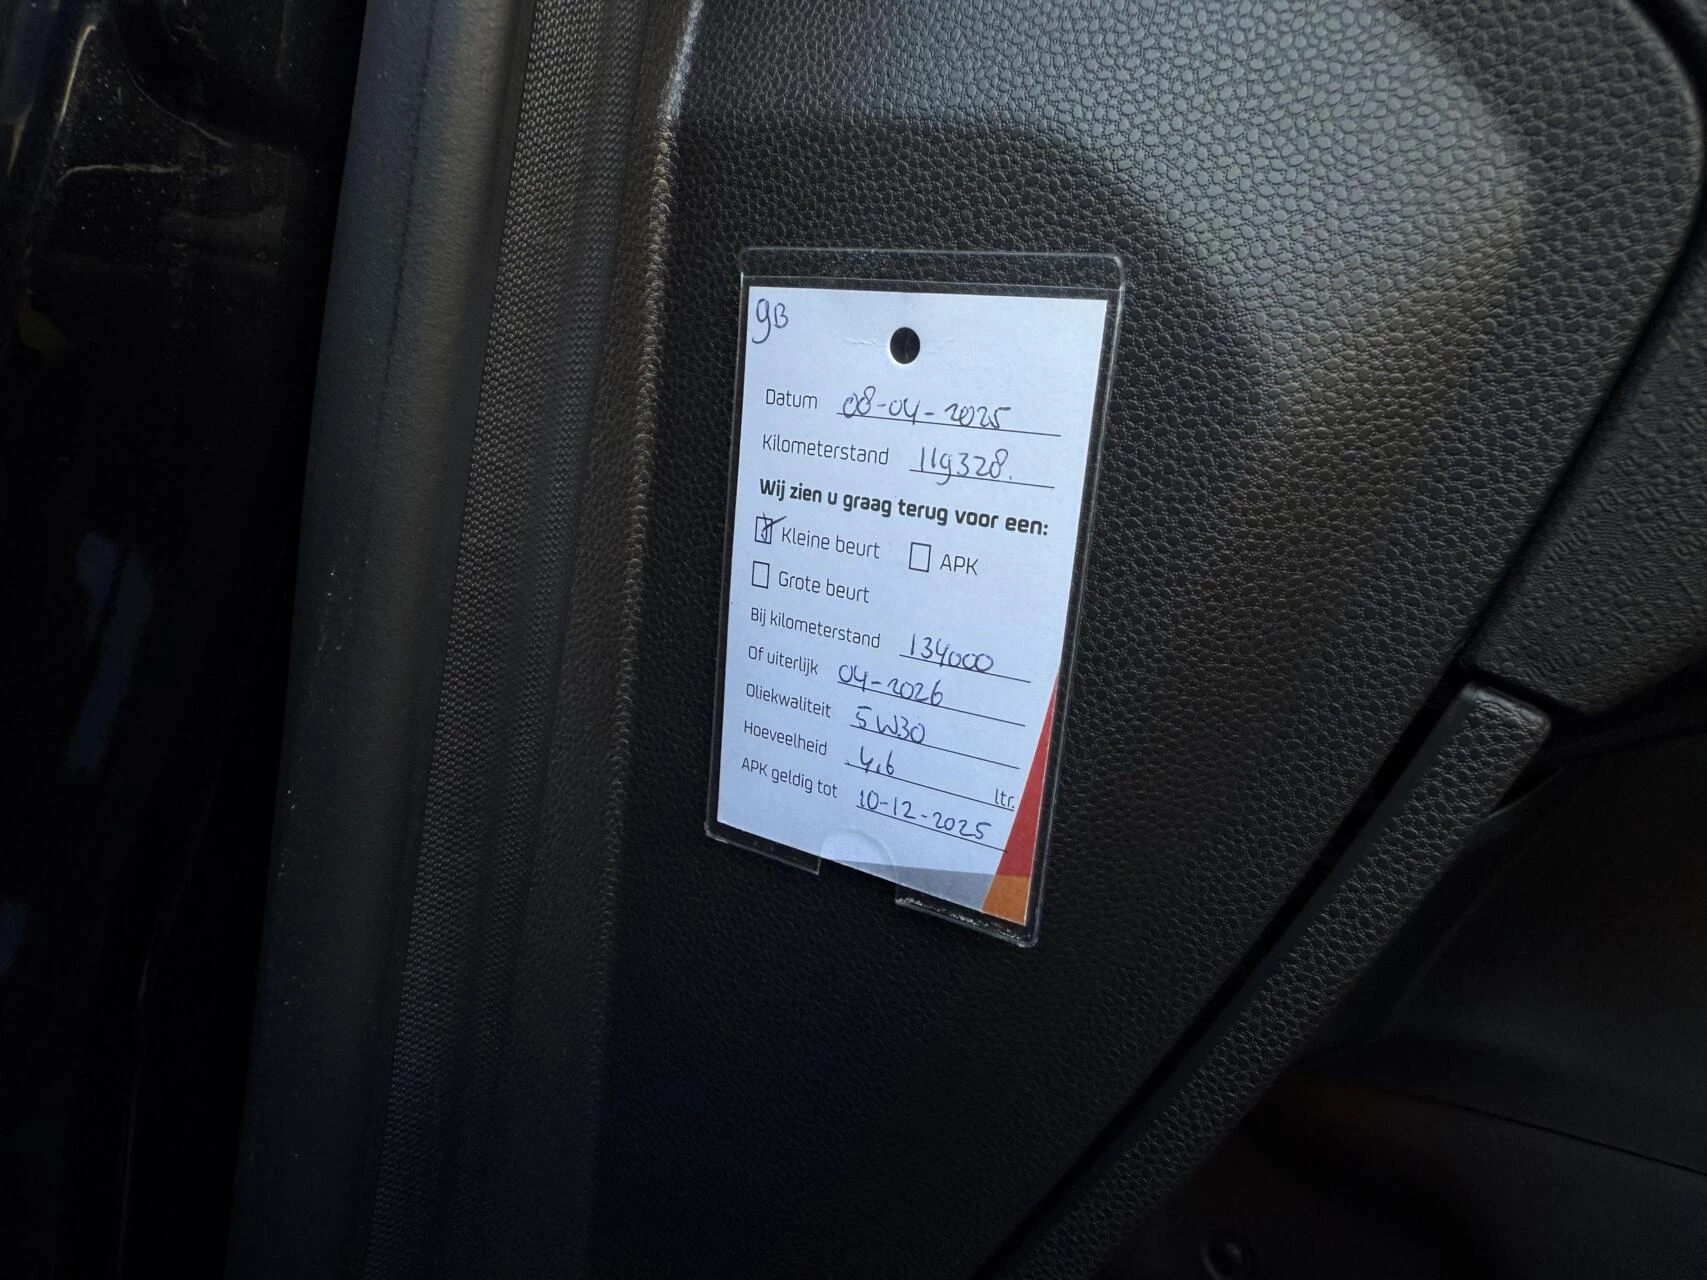 gB
Datum 08-04-2025
Kilometerstand 119328.
Wij zien u graag terug voor een:
Kleine beurt APK
Grote beurt
Bij kilometerstand 134000
Of uiterlijk 04-2026
Oliekwaliteit 5W30
Hoeveelheid 4,6 ltr.
APK geldig tot 10-12-2025